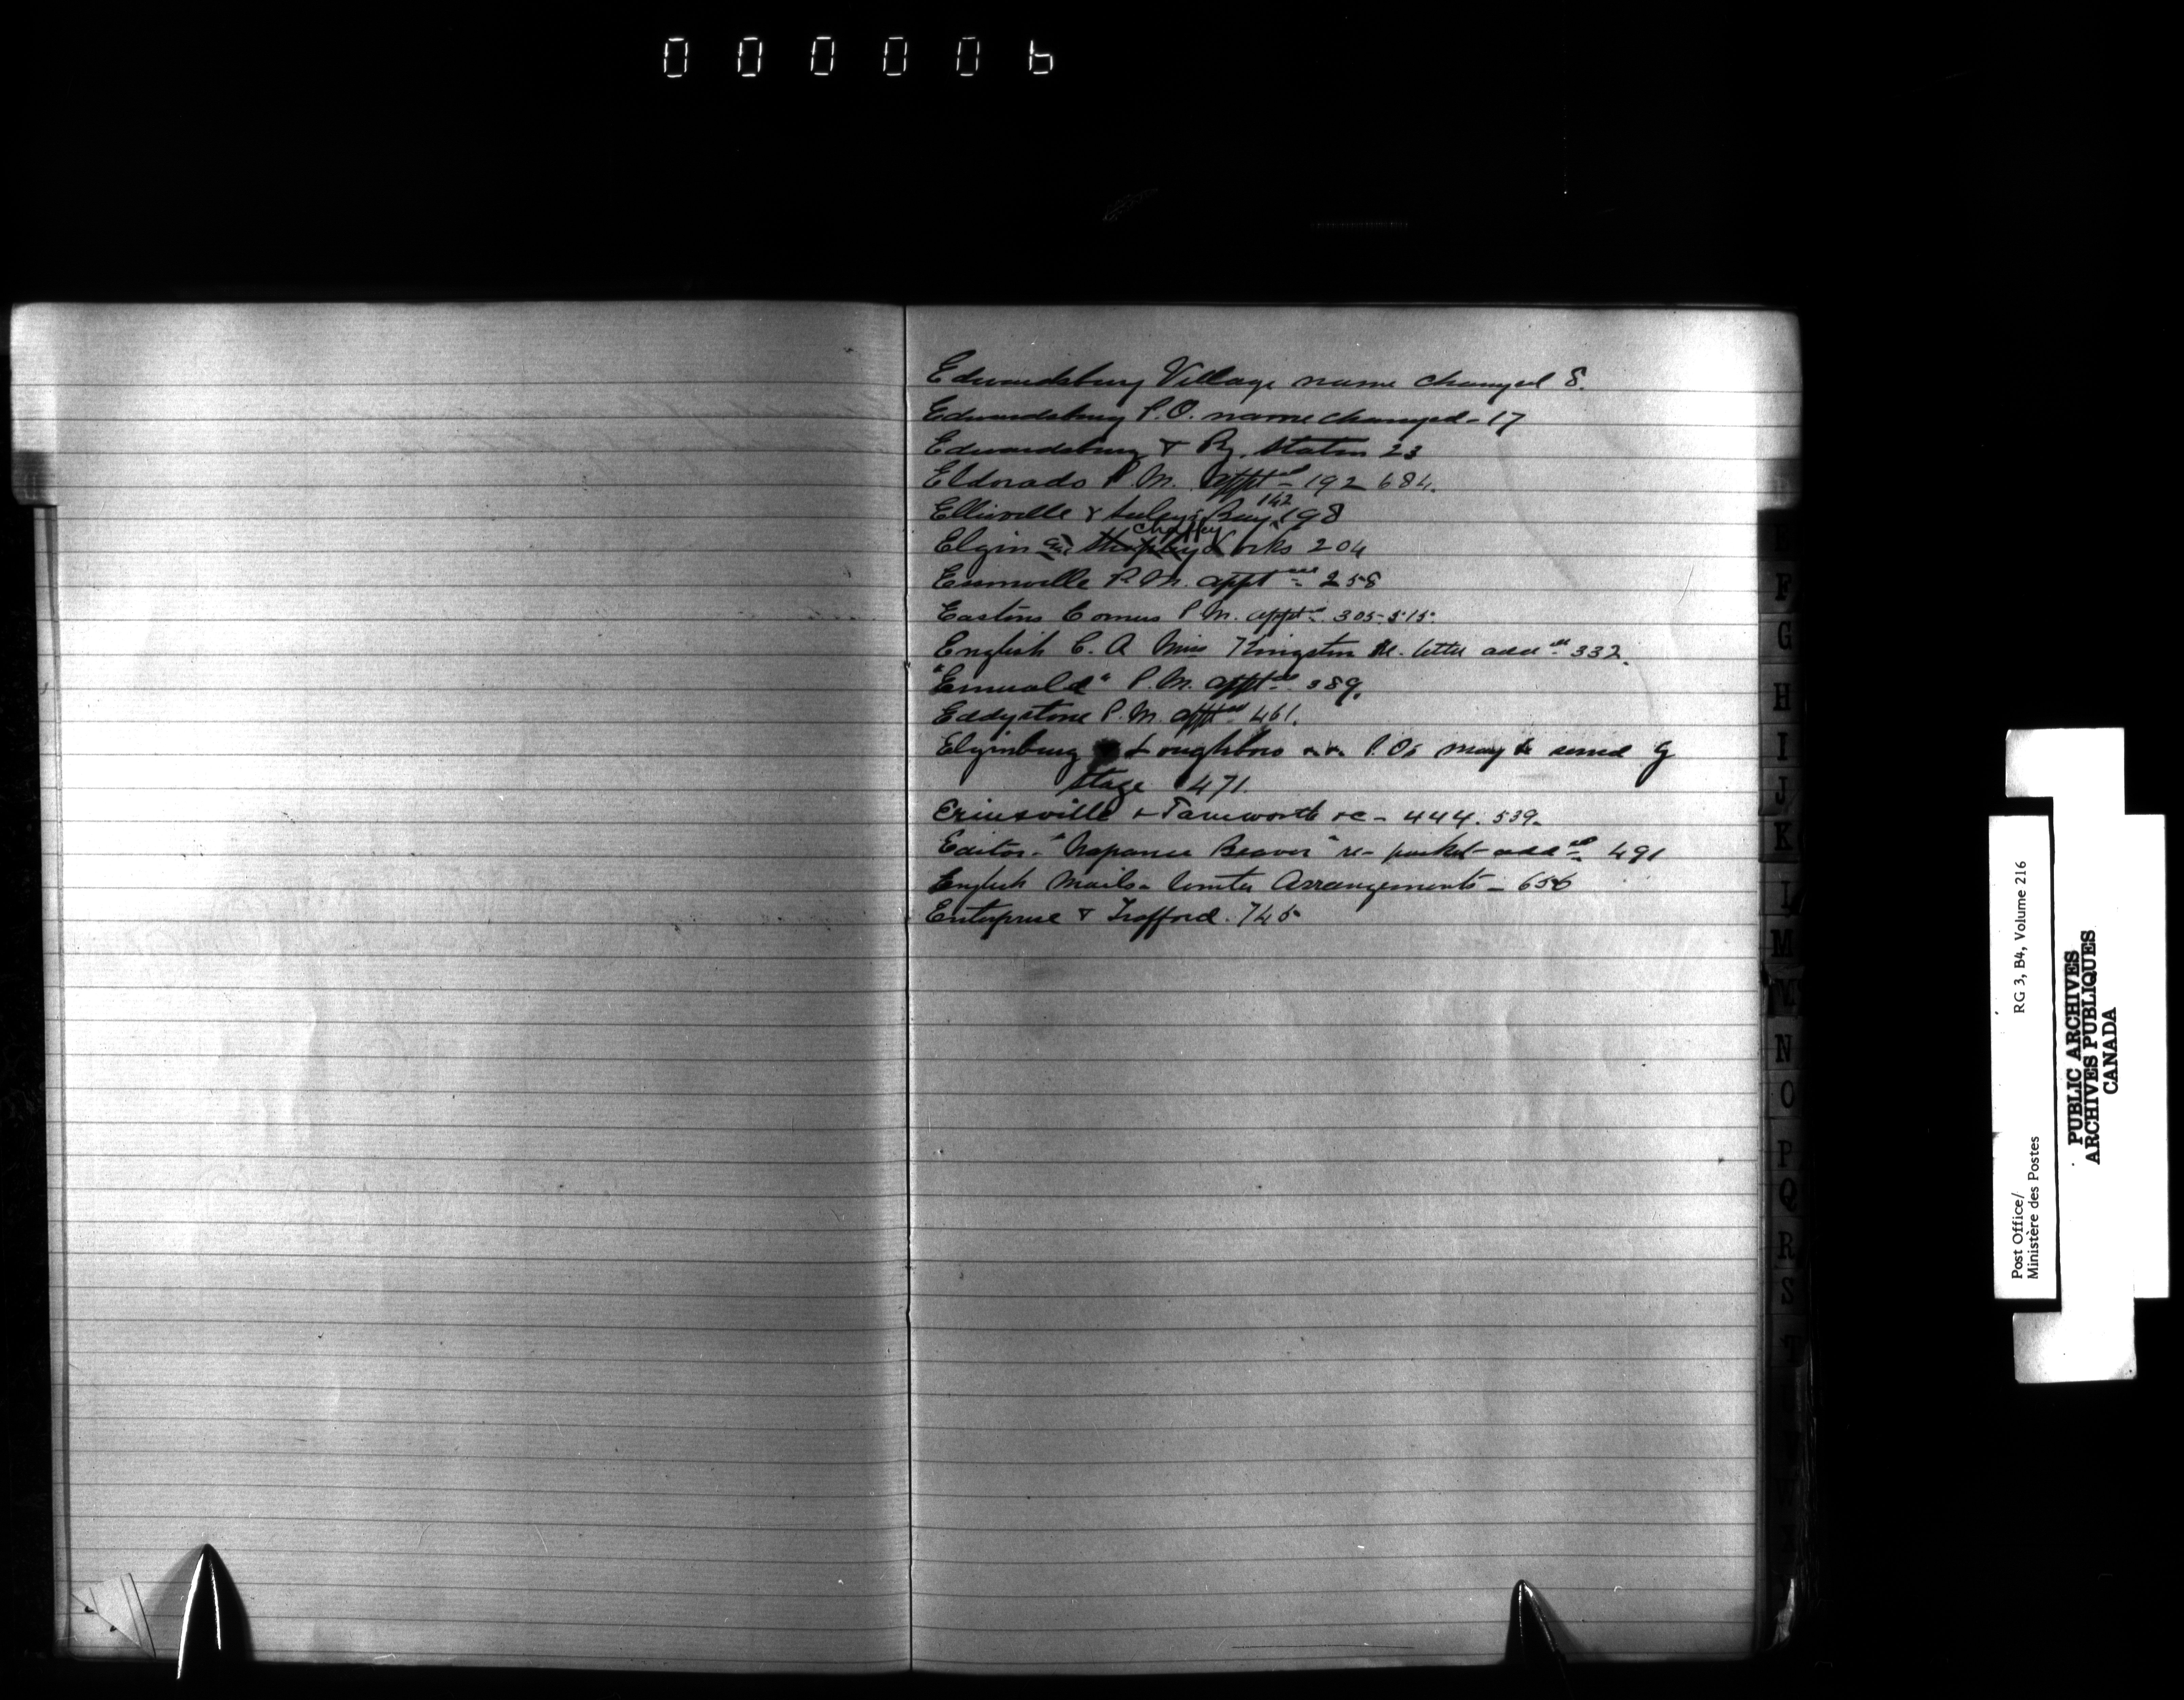 000006
Edwardsburg Village name changed 8.
Edwardsburg P.O. name changed - 17
Edwardsburg & Ry. Station 23
Eldorado P.M. apptd - 192 684.
142
Ellisville & Seeley's Bay 198
Chaffey
Elgin and Locks 204
P.M. appt 258
Eastons Corners P.M. apptd 305-515-
English C. A Miss Kingston re. letter addd 332.
"Emerald" P.M. apptd 389.
Eddystone P.M. apptd 461.
Elginburg & Loughboro P.Os may be served by
Stage 471.
Erinsville & Tamworth &c - 444. 539.
Editor - "Napanee Beaver" re - packet addd 491
English Mails - Winter Arrangements - 656
Enterprise & Trafford. 745
E
F
G
H
I
J
K
L
M
N
O
P
Q
R
S
T
Post Office/
Ministère des Postes
RG 3, B4, Volume 216
PUBLIC ARCHIVES
ARCHIVES PUBLIQUES
CANADA